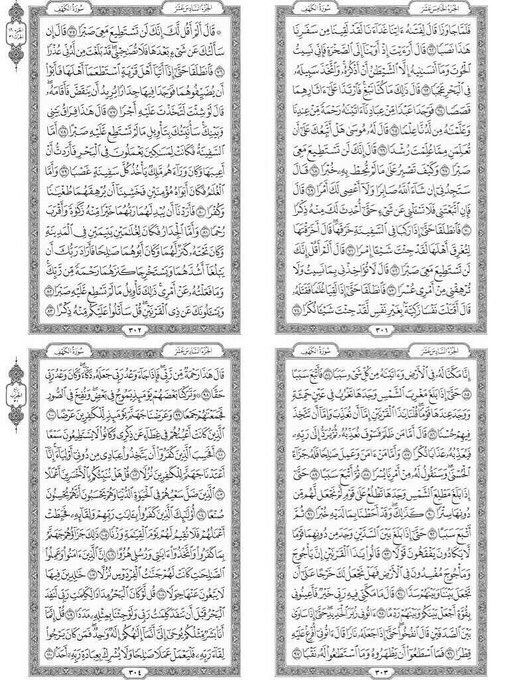 الجزء الخامس عشر سورة الكهف
فلما جاوزا قال لفتىه ءاتنا غداءنا لقد لقينا من سفرنا
هذا نصبا ٦٢ قال أرءيت إذ أوينا إلى الصخرة فإني نسيت
الحوت وما أنسىنيه إلا الشيطن أن أذكره واتخذ سبيله
في البحر عجبا ٦٣ قال ذلك ما كنا نبغ فارتدا على ءاثارهما
قصصا ٦٤ فوجدا عبدا من عبادنا ءاتينه رحمة من عندنا
وعلمنه من لدنا علما ٦٥ قال له موسى هل أتبعك على أن
تعلمن مما علمت رشدا ٦٦ قال إنك لن تستطيع معي صبرا
٦٧ وكيف تصبر على ما لم تحط به خبرا ٦٨ قال
ستجدني إن شاء الله صابرا ولا أعصي لك أمرا ٦٩ قال
فإن اتبعتني فلا تسئلني عن شيء حتى أحدث لك منه ذكرا
٧٠ فانطلقا حتى إذا ركبا في السفينة خرقها قال أخرقتها
لتغرق أهلها لقد جئت شيئا إمرا ٧١ قال ألم أقل إنك
لن تستطيع معي صبرا ٧٢ قال لا تؤاخذني بما نسيت ولا
ترهقني من أمري عسرا ٧٣ فانطلقا حتى إذا لقيا غلما فقتله
قال أقتلت نفسا زكية بغير نفس لقد جئت شيئا نكرا ٧٤
٣٠١
الجزء السادس عشر سورة الكهف
قال ألم أقل لك إنك لن تستطيع معي صبرا ٧٥ قال إن
سألتك عن شيء بعدها فلا تصحبني قد بلغت من لدني عذرا
٧٦ فانطلقا حتى إذا أتيا أهل قرية استطعما أهلها فأبوا
أن يضيفوهما فوجدا فيها جدارا يريد أن ينقض فأقامه
قال لو شئت لتخذت عليه أجرا ٧٧ قال هذا فراق بيني
وبينك سأنبئك بتأويل ما لم تستطع عليه صبرا ٧٨ أما
السفينة فكانت لمسكين يعملون في البحر فأردت أن
أعيبها وكان وراءهم ملك يأخذ كل سفينة غصبا ٧٩ وأما
الغلم فكان أبواه مؤمنين فخشينا أن يرهقهما طغينا
وكفرا ٨٠ فأردنا أن يبدلهما ربهما خيرا منه زكوة وأقرب
رحما ٨١ وأما الجدار فكان لغلمين يتيمين في المدينة
وكان تحته كنز لهما وكان أبوهما صلحا فأراد ربك أن
يبلغا أشدهما ويستخرجا كنزهما رحمة من ربك
وما فعلته عن أمري ذلك تأويل ما لم تسطع عليه صبرا ٨٢
ويسئلونك عن ذي القرنين قل سأتلوا عليكم منه ذكرا ٨٣
٣٠٢
الجزء السادس عشر سورة الكهف
إنا مكنا له في الأرض وءاتينه من كل شيء سببا ٨٤ فأتبع سببا
٨٥ حتى إذا بلغ مغرب الشمس وجدها تغرب في عين حمئة
ووجد عندها قوما قلنا يذا القرنين إما أن تعذب وإما أن تتخذ
فيهم حسنا ٨٦ قال أما من ظلم فسوف نعذبه ثم يرد إلى ربه
فيعذبه عذابا نكرا ٨٧ وأما من ءامن وعمل صلحا فله جزاء
الحسنى وسنقول له من أمرنا يسرا ٨٨ ثم أتبع سببا ٨٩ حتى
إذا بلغ مطلع الشمس وجدها تطلع على قوم لم نجعل لهم من
دونها سترا ٩٠ كذلك وقد أحطنا بما لديه خبرا ٩١ ثم
أتبع سببا ٩٢ حتى إذا بلغ بين السدين وجد من دونهما قوما
لا يكادون يفقهون قولا ٩٣ قالوا يذا القرنين إن يأجوج
ومأجوج مفسدون في الأرض فهل نجعل لك خرجا على أن
تجعل بيننا وبينهم سدا ٩٤ قال ما مكني فيه ربي خير فأعينوني
بقوة أجعل بينكم وبينهم ردما ٩٥ ءاتوني زبر الحديد حتى إذا ساوى
بين الصدفين قال انفخوا حتى إذا جعله نارا قال ءاتوني أفرغ عليه
قطرا ٩٦ فما اسطعوا أن يظهروه وما استطعوا له نقبا ٩٧
٣٠٣
الجزء السادس عشر سورة الكهف
قال هذا رحمة من ربي فإذا جاء وعد ربي جعله دكاء وكان وعد ربي
حقا ٩٨ وتركنا بعضهم يومئذ يموج في بعض ونفخ في الصور
فجمعنهم جمعا ٩٩ وعرضنا جهنم يومئذ للكفرين عرضا ١٠٠
الذين كانت أعينهم في غطاء عن ذكري وكانوا لا يستطيعون سمعا
١٠١ أفحسب الذين كفروا أن يتخذوا عبادي من دوني أولياء إنا
أعتدنا جهنم للكفرين نزلا ١٠٢ قل هل ننبئكم بالأخسرين أعملا
١٠٣ الذين ضل سعيهم في الحيوة الدنيا وهم يحسبون أنهم يحسنون
صنعا ١٠٤ أولئك الذين كفروا بءايت ربهم ولقائه فحبطت
أعملهم فلا نقيم لهم يوم القيمة وزنا ١٠٥ ذلك جزاؤهم جهنم
بما كفروا واتخذوا ءايتي ورسلي هزوا ١٠٦ إن الذين ءامنوا وعملوا
الصلحت كانت لهم جنت الفردوس نزلا ١٠٧ خلدين فيها
لا يبغون عنها حولا ١٠٨ قل لو كان البحر مدادا لكلمت ربي لنفد
البحر قبل أن تنفد كلمت ربي ولو جئنا بمثله مددا ١٠٩ قل إنما
أنا بشر مثلكم يوحى إلي أنما إلهكم إله وحد فمن كان يرجوا
لقاء ربه فليعمل عملا صلحا ولا يشرك بعبادة ربه أحدا ١١٠
٣٠٤